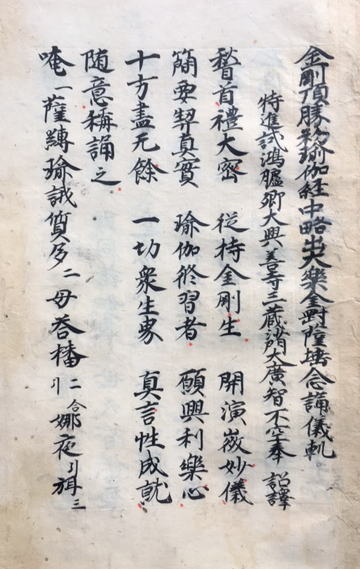 金剛頂勝初瑜伽経中略出大樂金剛薩埵念誦儀軌
特進試鴻臚卿大興善寺三蔵沙門大廣智不空奉 詔譯
稽首禮大密 従持金剛生 開演微妙儀
簡要契真實 瑜伽修習者 願興利樂心
十方盡无餘 一切衆生界 真言性成就
随意稱誦之
唵一薩嚩瑜誐質多二母荅播二合引娜夜引弭三